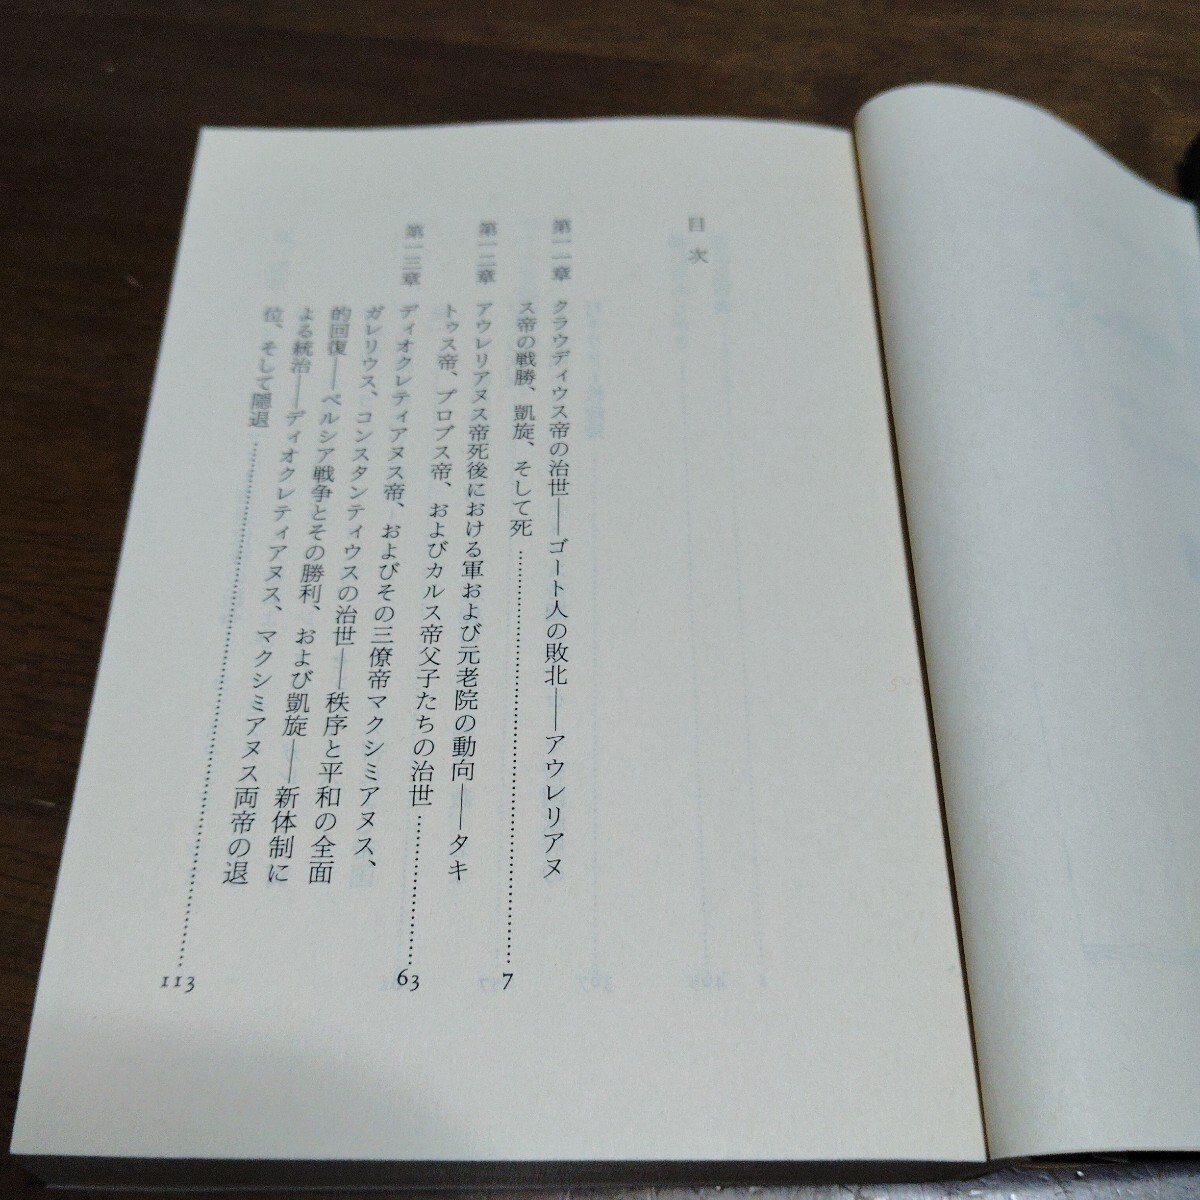 目次
第一一章 クラウディウス帝の治世――ゴート人の敗北――アウレリアヌ
ス帝の戦勝、凱旋、そして死……………………7
第一二章 アウレリアヌス帝死後における軍および元老院の動向――タキ
トゥス帝、プロブス帝、およびカルス帝父子たちの治世…………63
第一三章 ディオクレティアヌス帝、およびその三僚帝マクシミアヌス、
ガレリウス、コンスタンティウスの治世――秩序と平和の全面
的回復――ペルシア戦争とその勝利、および凱旋――新体制に
よる統治――ディオクレティアヌス、マクシミアヌス両帝の退
位、そして隠退……………………………113